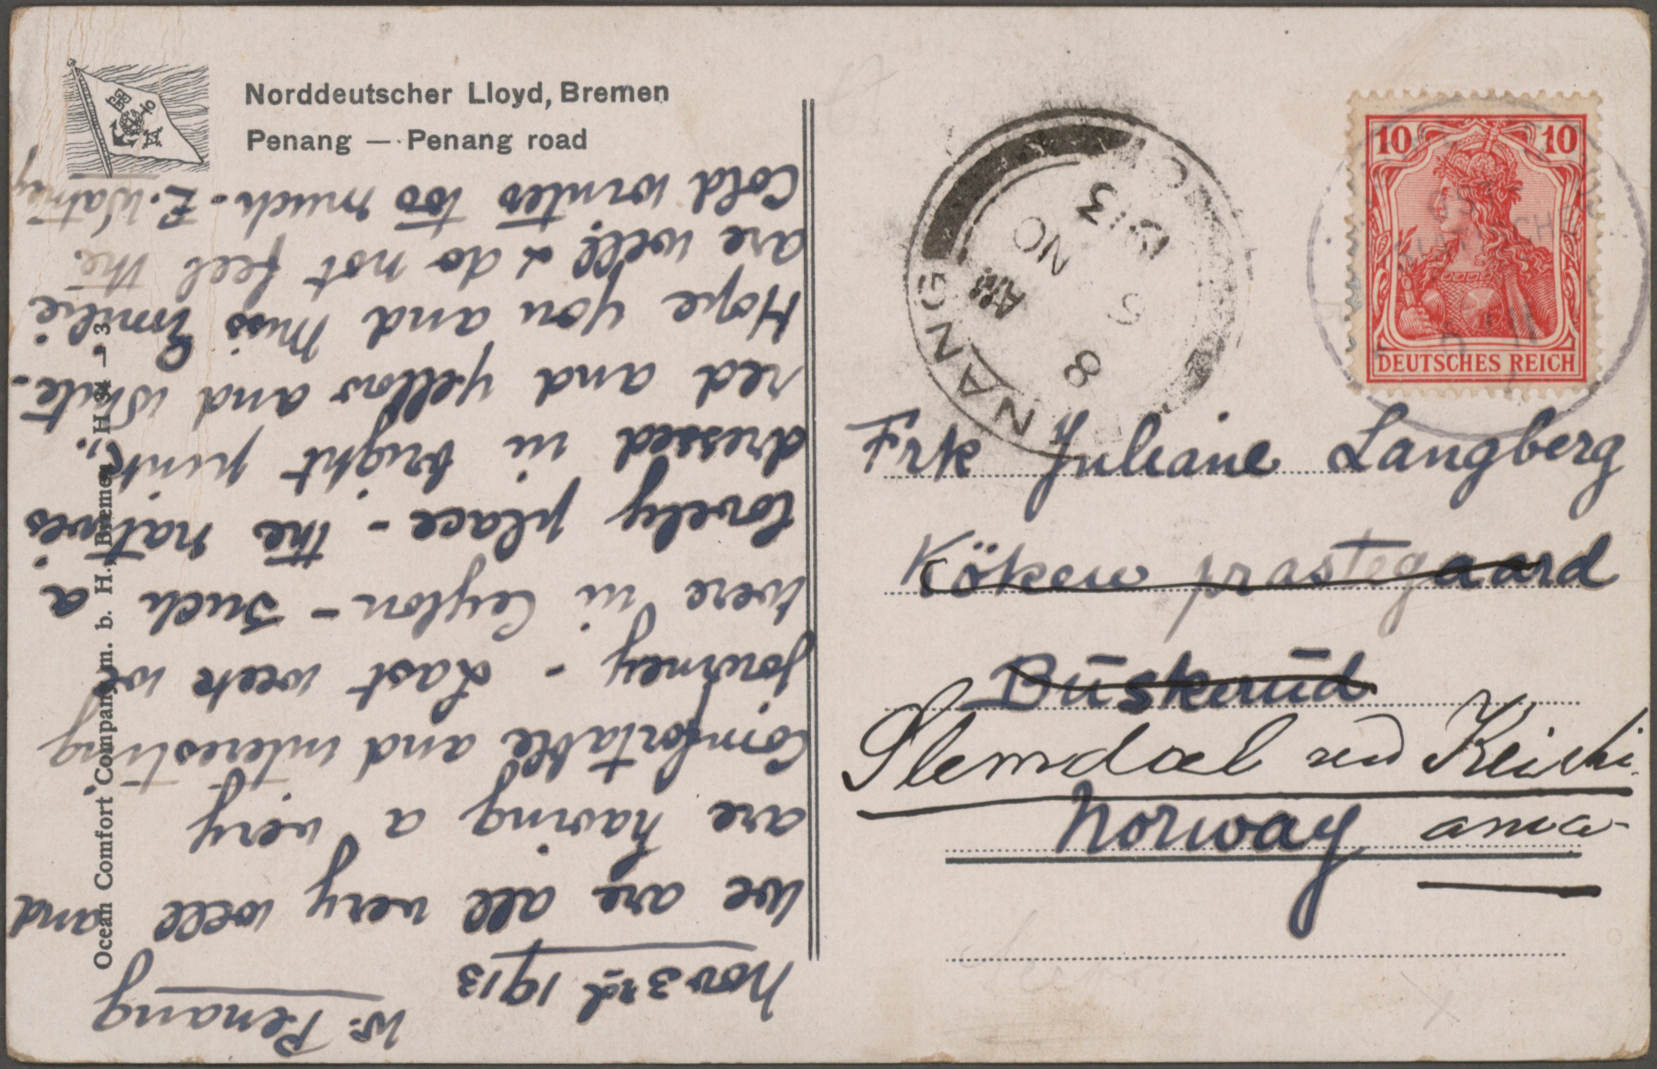 Norddeutscher Lloyd, Bremen
Penang — Penang road
Ocean Comfort Company m. b. H., Bremen. H 34 – 3
Penang
Nov 3rd 1913
We are all very well and
are having a very
comfortable and interesting
journey - Last week we
were in Ceylon - Such a
lovely place - the natives
dressed in bright pink,
red and yellow and white.
Hope you and Miss Emilie
are well & do not feel the
Cold winter too much - E.
10 10
DEUTSCHES REICH
NANG
8 AM
5 NO
1913
Frk Juliane Langberg
Köken prastegaard
Buskerud
Slemdal
Norway